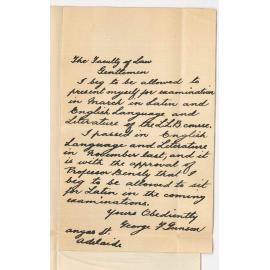 The Faculty of Law
Gentlemen
I beg to be allowed to
present myself for examination
in March in Latin and
English Language and
Literature of the LLB course.
I passed in English
Language and Literature
in November last, and it
is with the approval of
Professor Bensly that I
beg to be allowed to sit
for Latin in the coming
examinations.
Yours Obediently
George F.
Angas St.
Adelaide